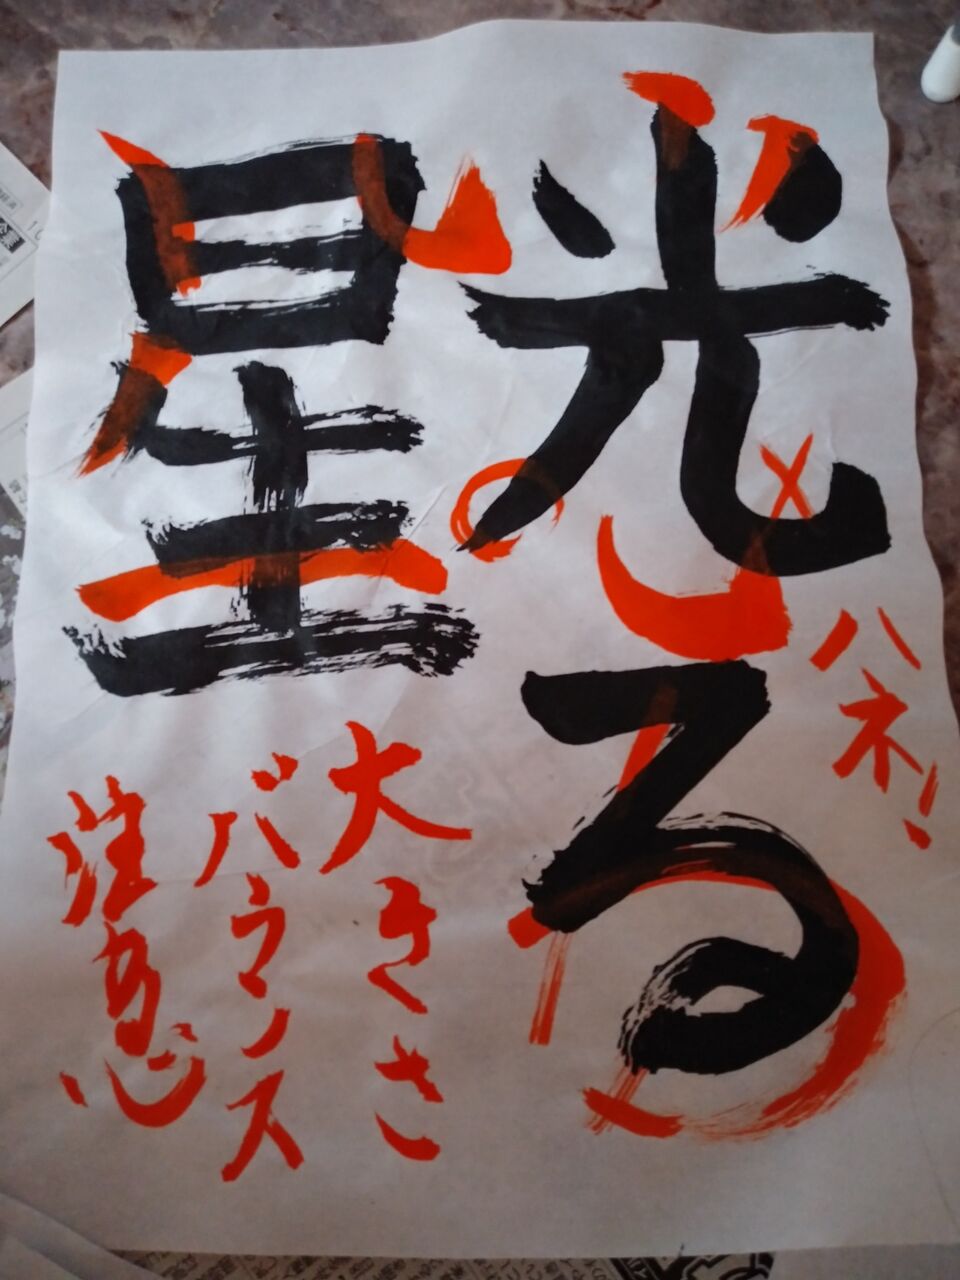 光る
星
ハネ!
大きさ
バランス
注意